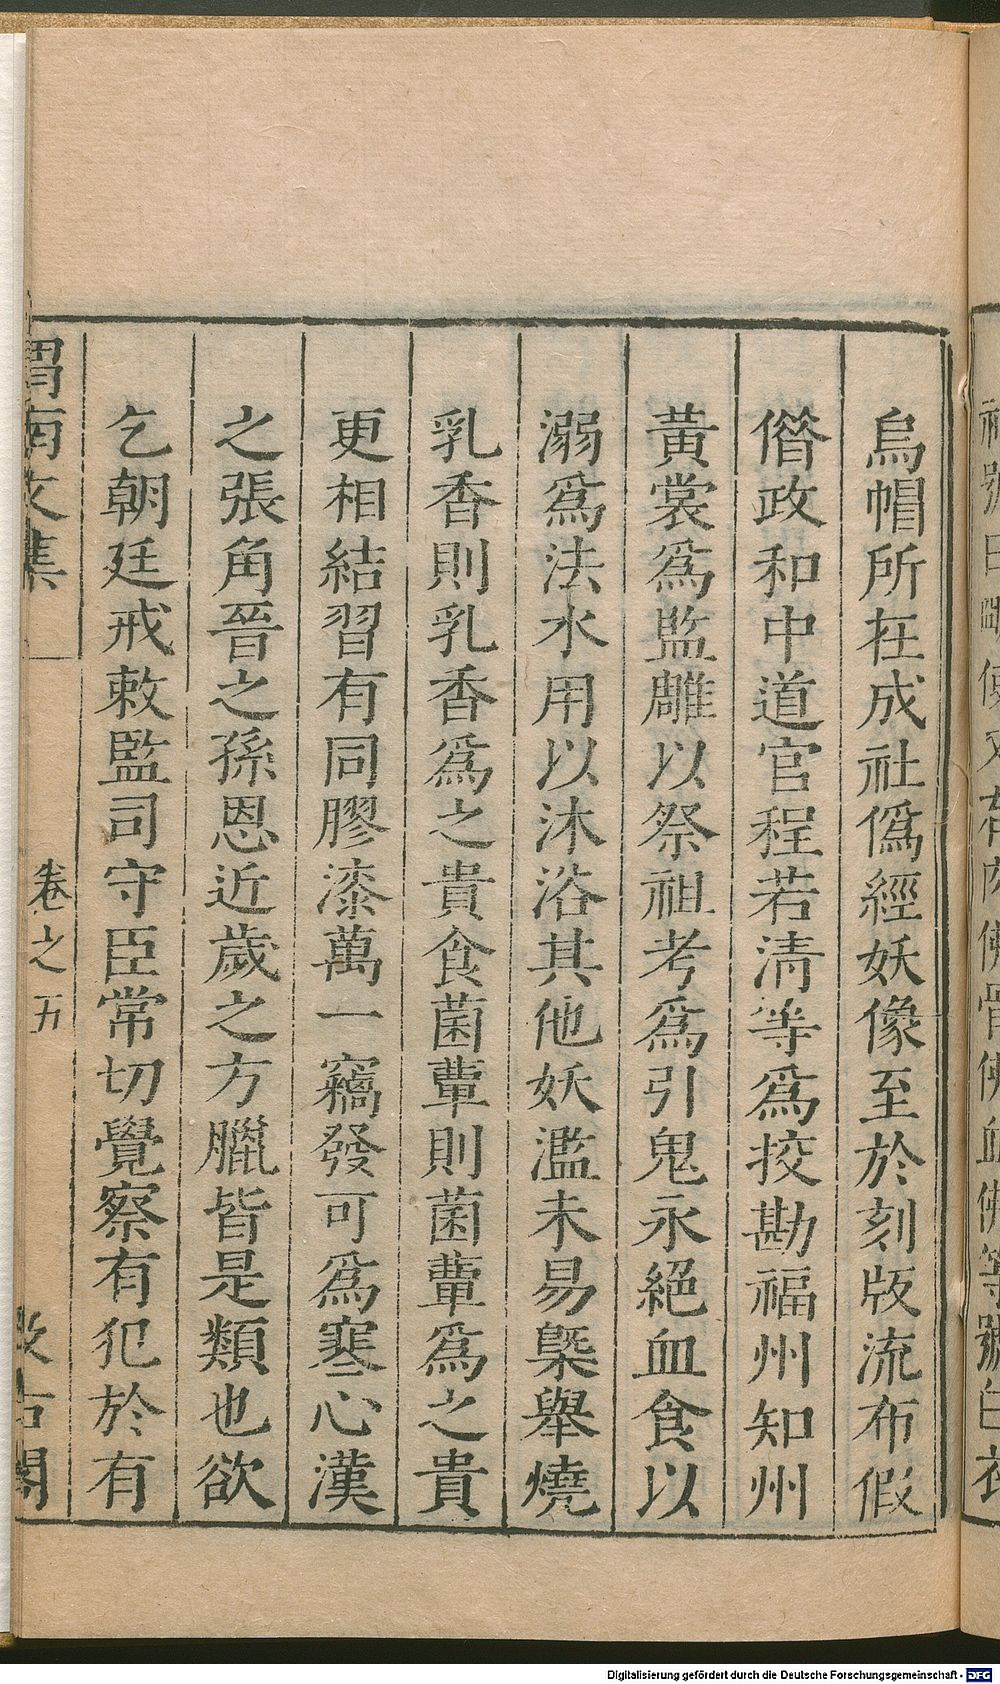 烏帽所在成社僞經妖像至於刻版流布假
僭政和中道官程若淸等爲挍勘福州知州
黃裳爲監雕以祭祖考爲引鬼永絕血食以
溺爲法水用以沐浴其他妖濫未易槩舉燒
乳香則乳香爲之貴食菌蕈則菌蕈爲之貴
更相結習有同膠漆萬一竊發可爲寒心漢
之張角晉之孫恩近歲之方臘皆是類也欲
乞朝廷戒敕監司守臣常切覺察有犯於有
渭南文集 卷之五 汲古閣
Digitalisierung gefördert durch die Deutsche Forschungsgemeinschaft - DFG